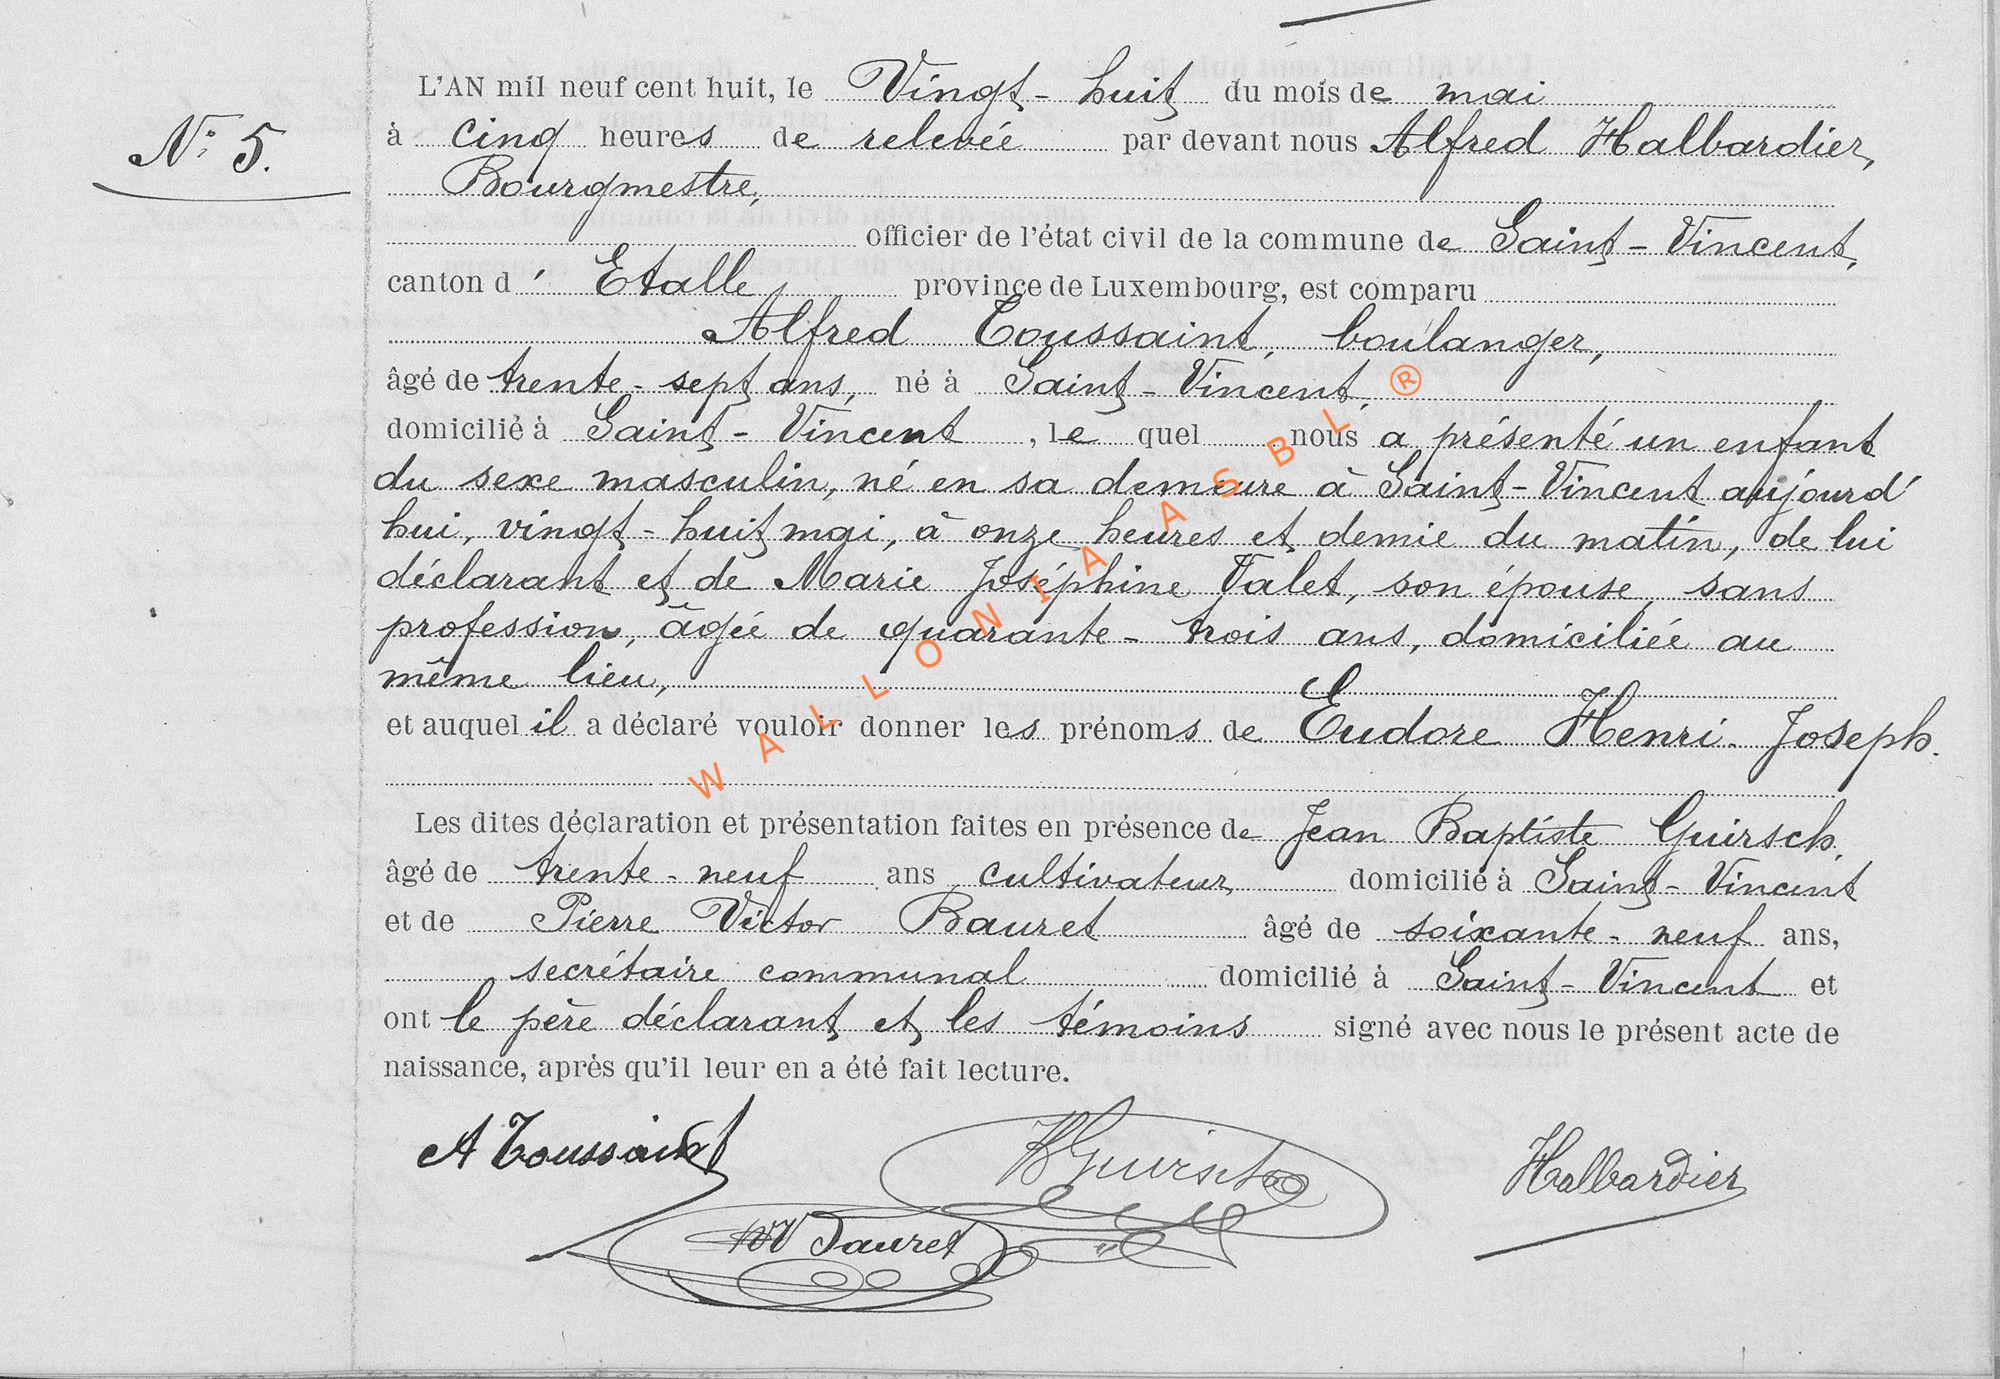 L'AN mil neuf cent huit, le Vingt-huit du mois de mai
N° 5.
à cinq heures de relevée par devant nous Alfred Halbardier,
Bourgmestre,
officier de l'état civil de la commune de Saint-Vincent,
canton d' Etalle, province de Luxembourg, est comparu
Alfred Toussaint, boulanger,
âgé de trente-sept ans, né à Saint-Vincent,
domicilié à Saint-Vincent, lequel nous a présenté un enfant
du sexe masculin, né en sa demeure à Saint-Vincent aujourd'
hui, vingt-huit mai, à onze heures et demie du matin, de lui
déclarant et de Marie Joséphine Valet, son épouse, sans
profession, âgée de quarante-trois ans, domiciliée au
même lieu,
et auquel il a déclaré vouloir donner les prénoms de Eudore Henri Joseph.
Les dites déclaration et présentation faites en présence de Jean Baptiste Guirsch,
âgé de trente-neuf ans, cultivateur domicilié à Saint-Vincent
et de Pierre Victor Bauret âgé de soixante-neuf ans,
secrétaire communal domicilié à Saint-Vincent et
ont le père déclarant et les témoins signé avec nous le présent acte de
naissance, après qu'il leur en a été fait lecture.
A Toussaint Guirsch Halbardier
Bauret
WALLONIA ASBL ®